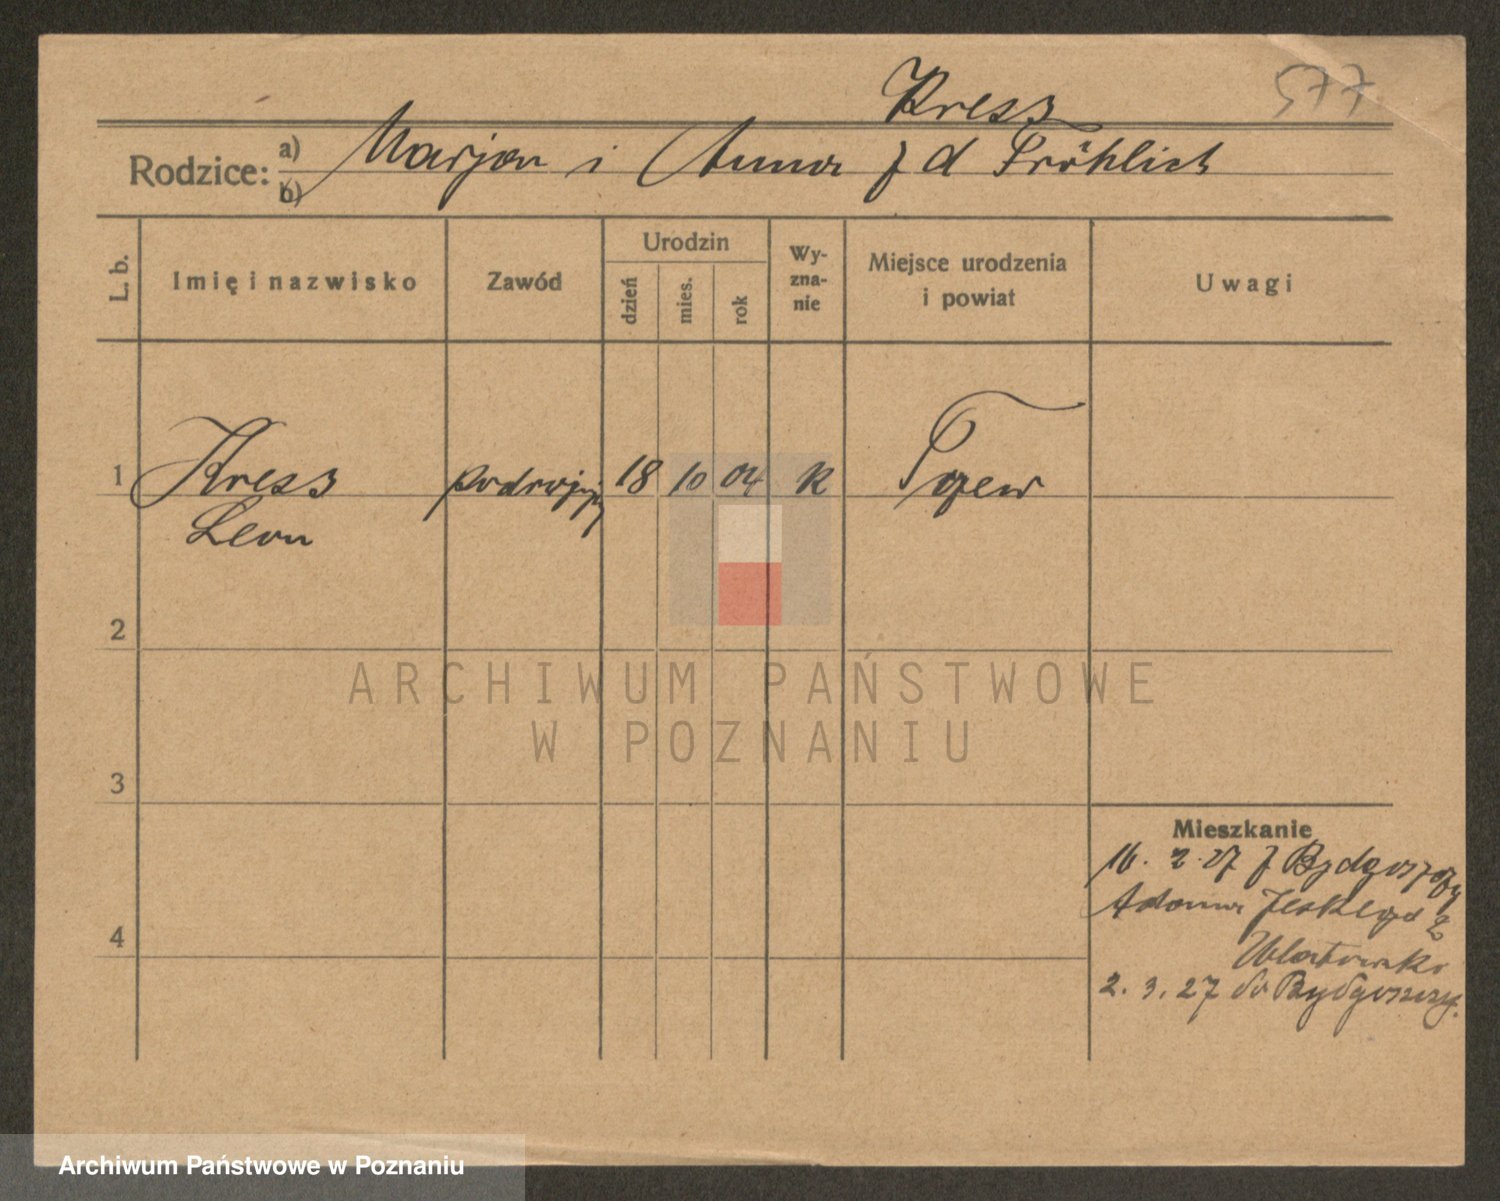 Kress
577
Rodzice: a) Marjan i Anna z d Fröhlich
b)
L. b.
Imię i nazwisko
Zawód
Urodzin
dzień
mies.
rok
Wy-
zna-
nie
Miejsce urodzenia
i powiat
Uwagi
1 Kress 18 10 04 k Tczew
Leon
2
3
4
Mieszkanie
16. 2. 27 z Bydgoszczy
2. 3. 27 do Bydgoszczy.
ARCHIWUM PAŃSTWOWE
W POZNANIU
Archiwum Państwowe w Poznaniu